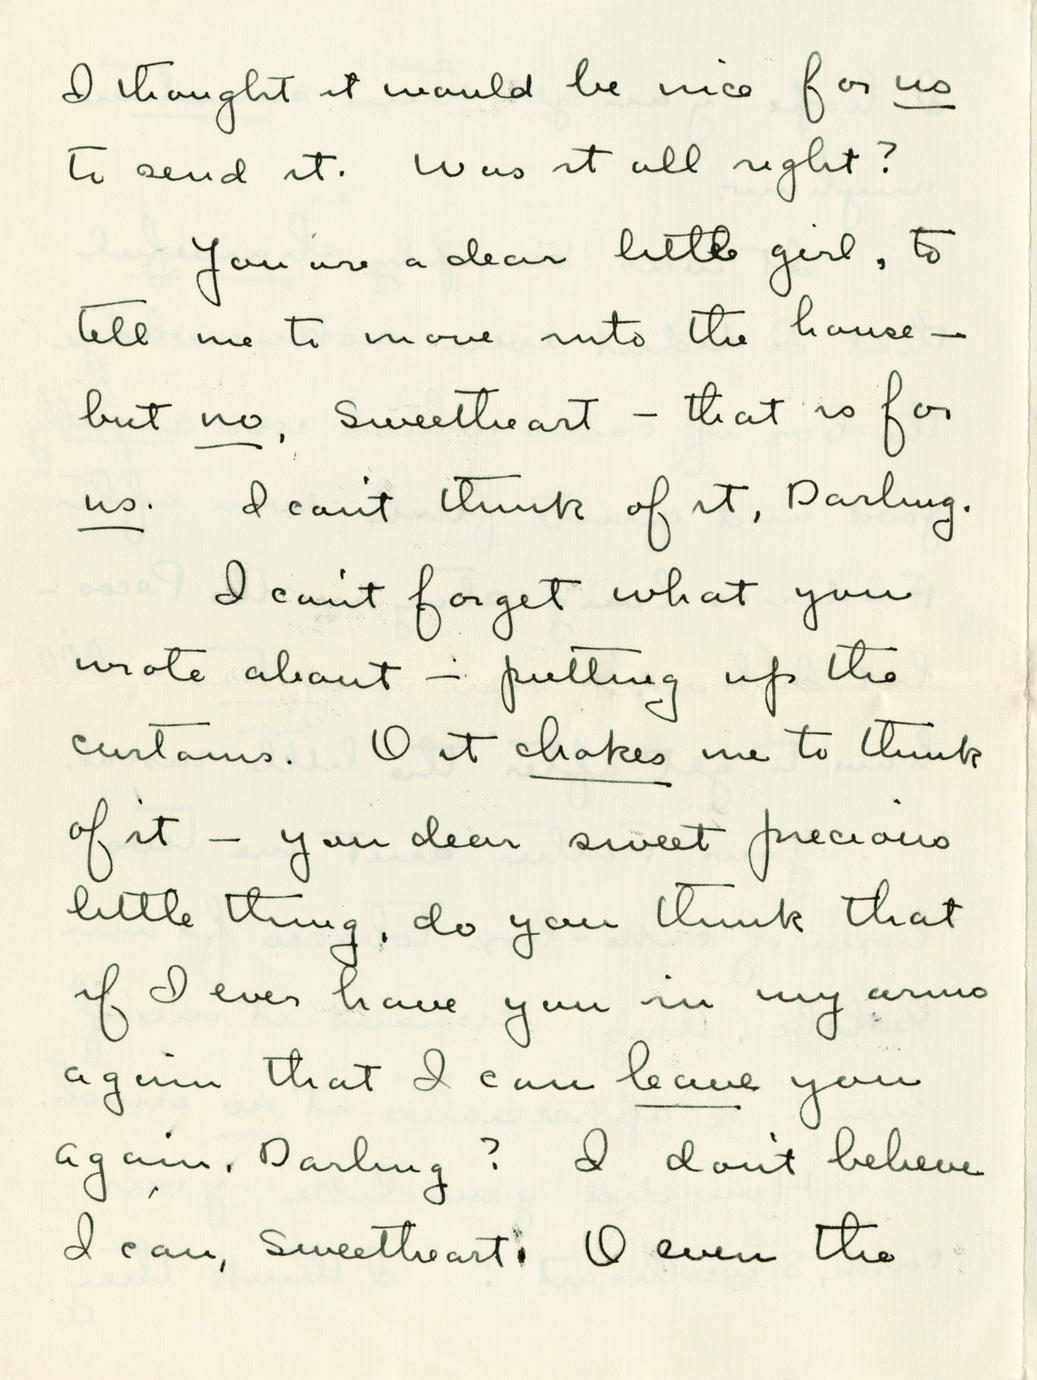 I thought it would be nice for us
to send it. Was it all right?
You are a dear little girl, to
tell me to move into the house —
but no, sweetheart — that is for
us. I can't think of it, Darling.
I can't forget what you
wrote about — putting up the
curtains. O it chokes me to think
of it — you dear sweet precious
little thing, do you think that
if I ever have you in my arms
again that I can leave you
again, Darling? I don't believe
I can, sweetheart. O even the